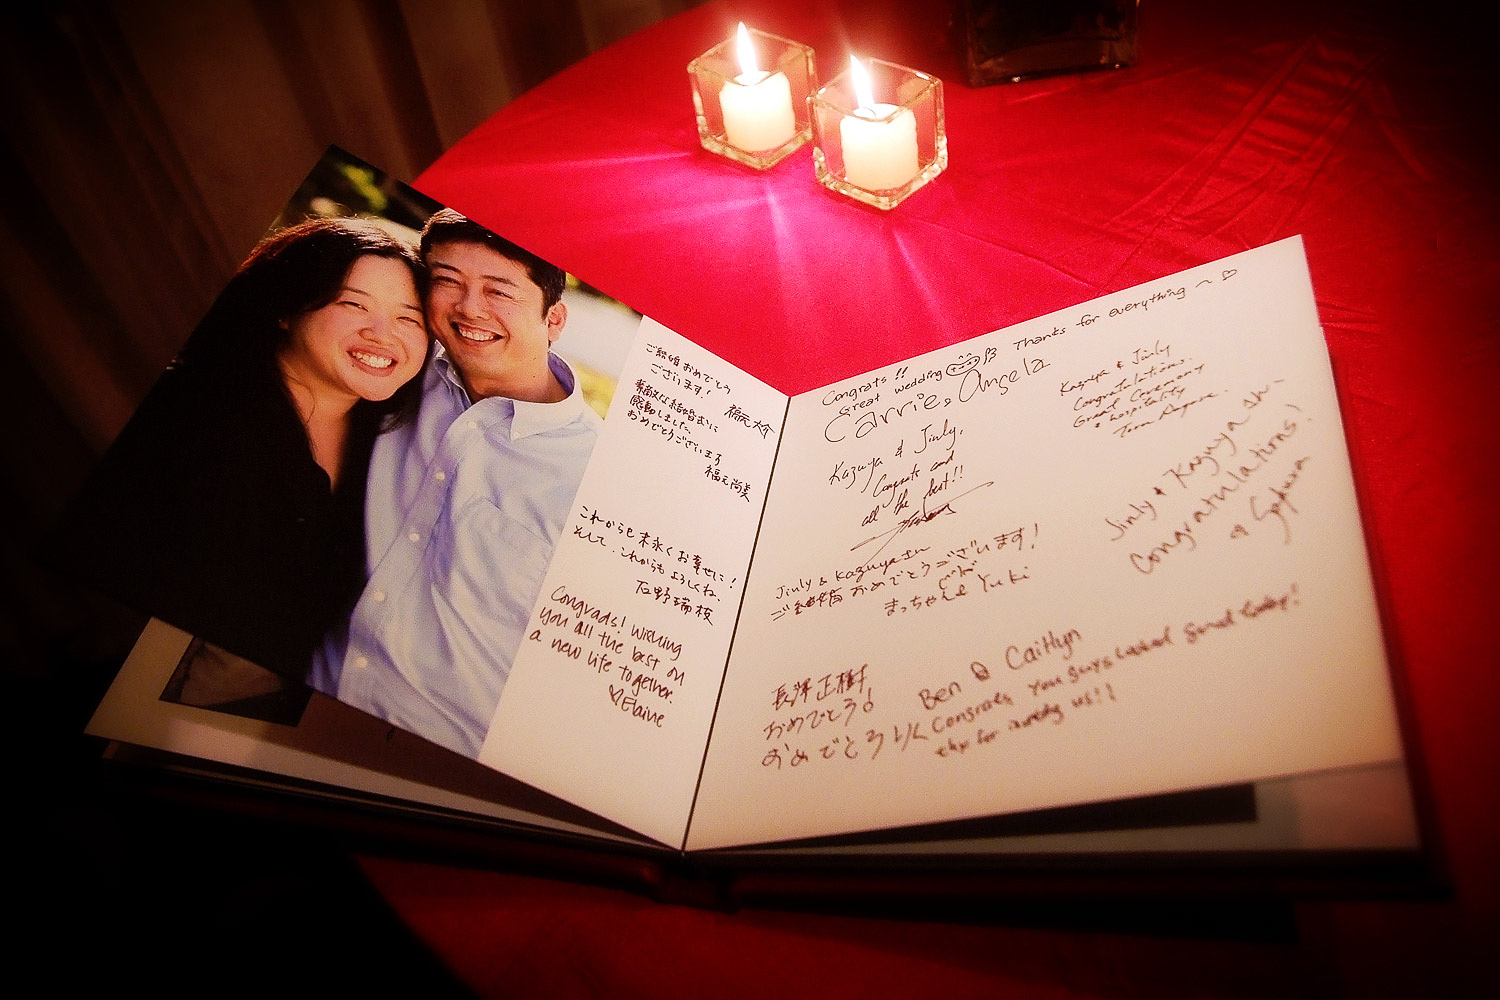 ご結婚おめでとう
ございます!
福元 大介
素敵な結婚式に
感動しました。
おめでとうございます
福元尚美
これからも末永くお幸せに!
そして、これからもよろしくね。
石野瑞枝
Congrads! Wishing
you all the best on
a new life together.
♡Elaine
Congrats!!
Great wedding
Thanks for everything ~ ♡
Carrie, Angela
Kazuya & Jinly,
Congrats and
all the best!!
Kazuya & Jinly
Congratulations.
Great Ceremony
& hospitality
Jinly & Kazuyaさん
Congratulations!
Satura
Jinly & Kazuyaさん
ご結婚おめでとうございます!
まっちゃん& Yuki
長澤 正樹
おめでとう!
おめでとう
Ben & Caitlyn
Congrats, you guys looked good today!
thx for inviting us!!